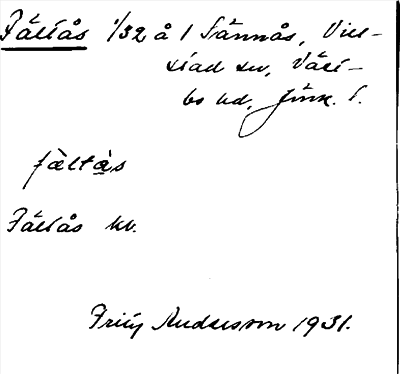 Fältås 1/32 å 1 Sännås, Vill-
stad sn, Väst-
bo hd, Jönk. l.
fàltås
Fältås kv.
Fritz Andersson 1931.